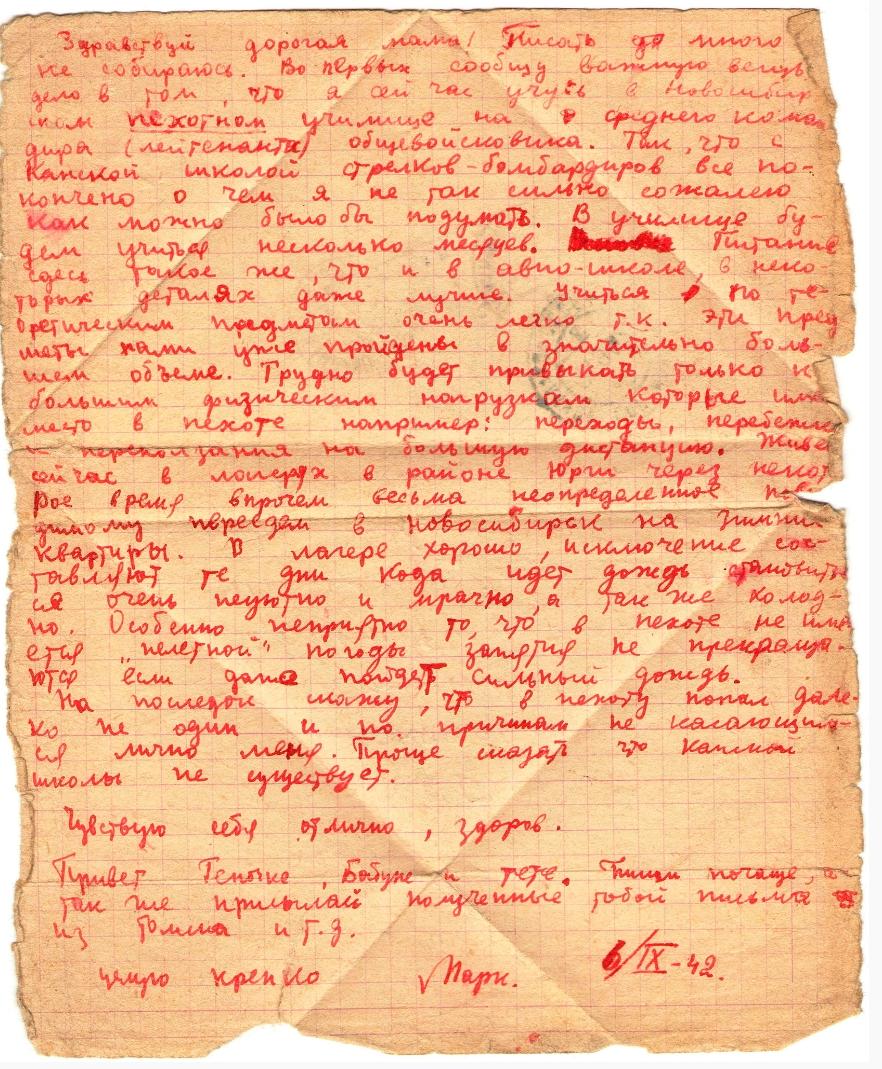 Здравствуй дорогая мама! Писать много
не собираюсь. Во первых сообщу важную вещь
дело в том, что я сейчас учусь в Новосибир
ском пехотном училище на среднего коман
дира (лейтенанта) общевойсковика. Так, что с
Канской школой стрелков-бомбардиров все по-
кончено о чем я не так сильно сожалею
как можно было бы подумать. В училище бу-
дем учиться несколько месяцев. Питание
здесь такое же, что и в авио-школе, в неко-
торых деталях даже лучше. Учиться по те-
оретическим предметам очень легко т.к. эти пред
меты нами уже пройдены в значительно боль-
шем объеме. Трудно будет привыкать только к
большим физическим нагрузкам которые име
место в пехоте например: переходы, перебежки
и переползания на большую дистанцию. Живе
сейчас в лагерях в районе Юрги через некот
рое время впрочем весьма неопределенное пов
димому переедем в Новосибирск на зимни
квартиры. В лагере хорошо, исключение сос-
тавляют те дни кода идет дождь становить
ся очень неуютно и мрачно, а так же холод-
но. Особенно неприятно то, что в пехоте не име
ется "нелетной" погоды занятия не прекраща-
ются если даже пойдет сильный дождь.
На последок скажу, что в пехоту попал дале-
ко не один и по причинам не касающим-
ся лично меня. Проще сказать что Канской
школы не существует.
Чувствую себя отлично, здоров.
Привет Геночке, Бабуне и тете. Пиши почаще, а
так же присылай полученные тобой письма
из Томска и т.д.
целую крепко Марк. 6/IX-42.